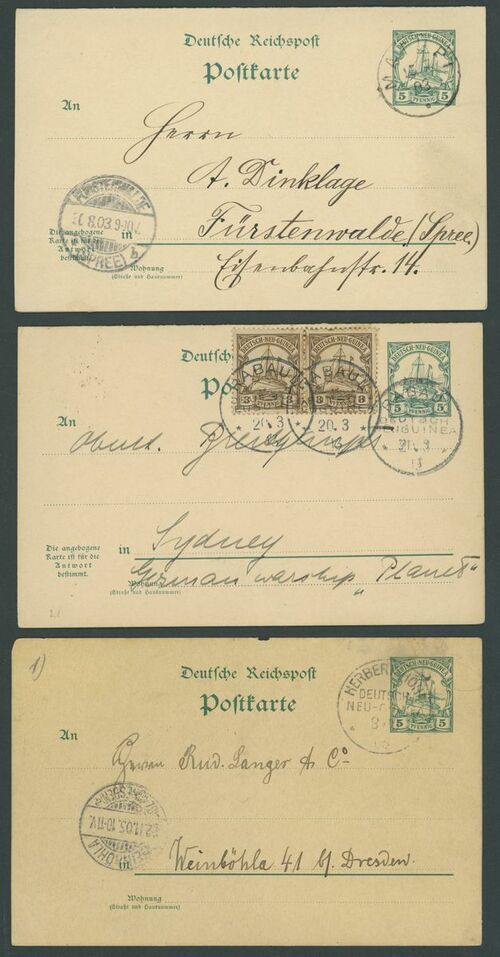 Deutsche Reichspost
Postkarte
DEUTSCH-NEU-GUINEA
5 PFENNIG 5
An
Herrn
A. Dinklage
in Fürstenwalde (Spree.)
Eisenbahnstr. 14.
FÜRSTENWALDE
8.03 9-10
(SPREE) b
Die angebogene
Karte ist für die
Antwort
bestimmt.
Wohnung
(Straße und Hausnummer)
DEUTSCH-NEU-GUINEA
3 PFENNIG 3
DEUTSCH-NEU-GUINEA
3 PFENNIG 3
DEUTSCH-NEU-GUINEA
5 PFENNIG 5
RABAUL
20.3
RABAUL
20.3
RABAUL
DEUTSCH
NEUGUINEA
21.3
13
An
Die angebogene
Karte ist für die
Antwort
bestimmt.
in Sydney
German warship „Planet"
Wohnung
(Straße und Hausnummer)
1)
Deutsche Reichspost
Postkarte
HERBERTSHÖH
DEUTSCH
NEU-G
DEUTSCH-NEU-GUINEA
5 PFENNIG 5
An
Herren Rud. Langer & Co
11.05.10-11V.
in Weinböhla 41 b/. Dresden.
Wohnung
(Straße und Hausnummer)